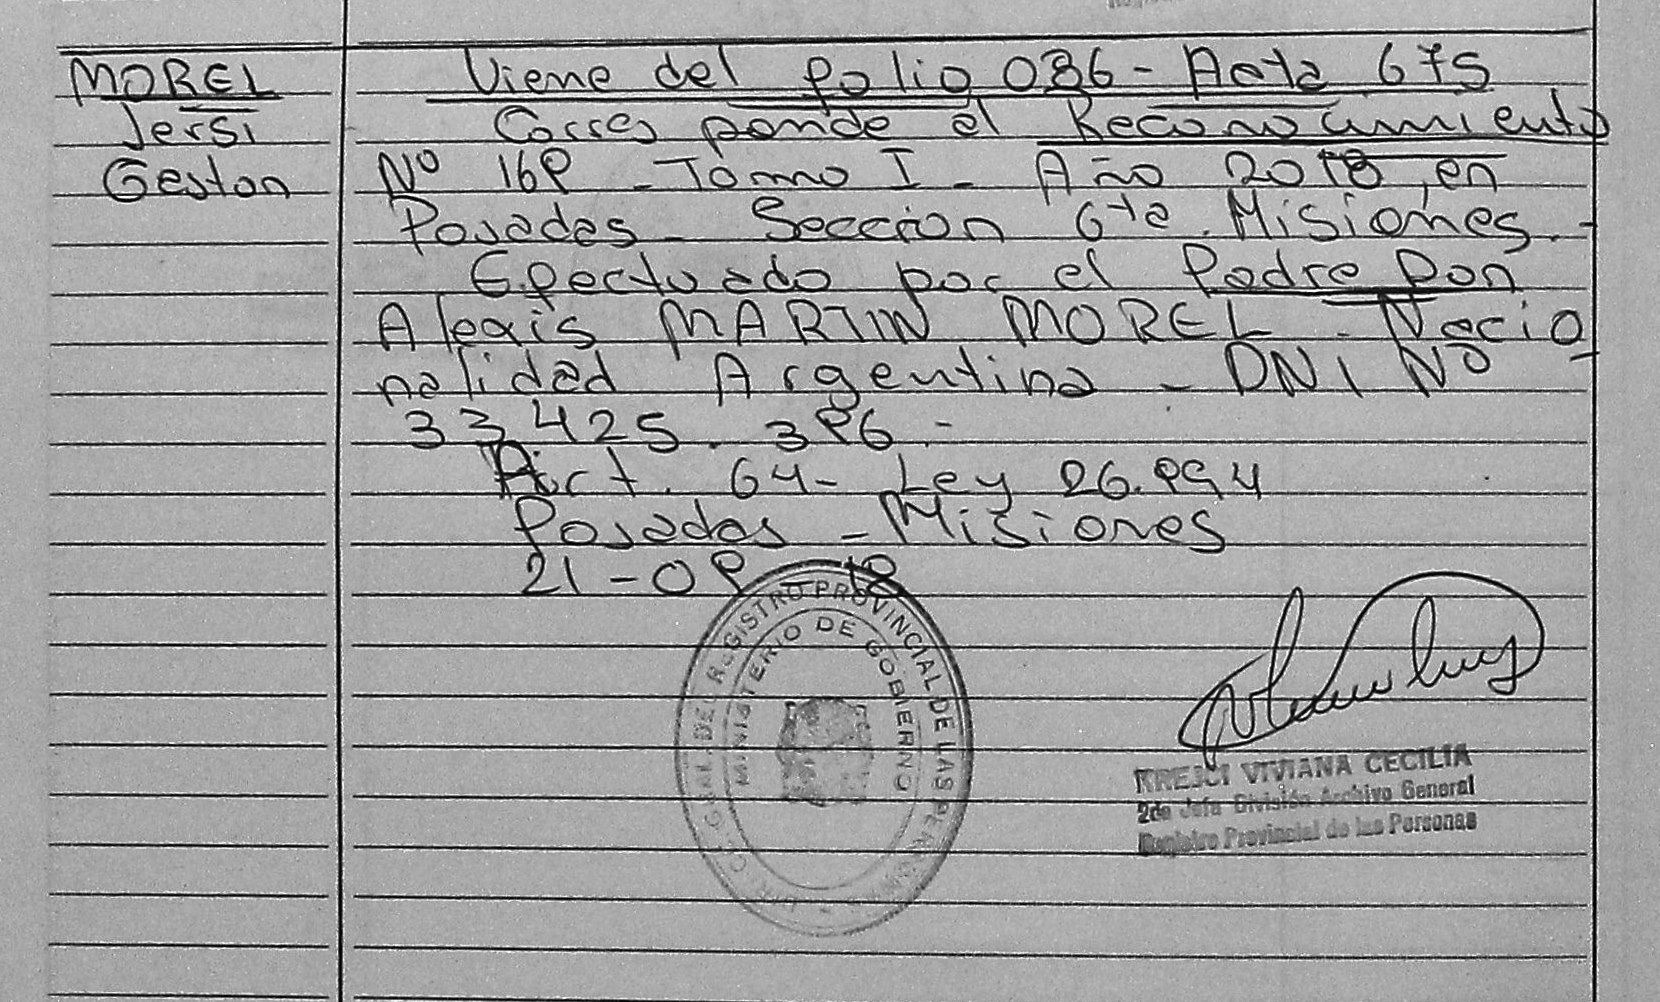 MOREL
Jersi
Gaston
Viene del folio 086 - Acta 675
Corresponde al Reconocimiento
Nº 169 - Tomo I - Año 2018, en
Posadas - Seccion 6ta. Misiones.-
Efectuado por el Padre Don
Alexis MARTIN MOREL - Nacio
nalidad Argentina - DNI Nº
33.425.396.-
Art. 64 - Ley 26.994
Posadas - Misiones
21-09-18
DIR. GRAL. DEL REGISTRO PROVINCIAL DE LAS PERSONAS
MINISTERIO DE GOBIERNO
KREJCI VIVIANA CECILIA
2da Jefa División Archivo General
Registro Provincial de las Personas